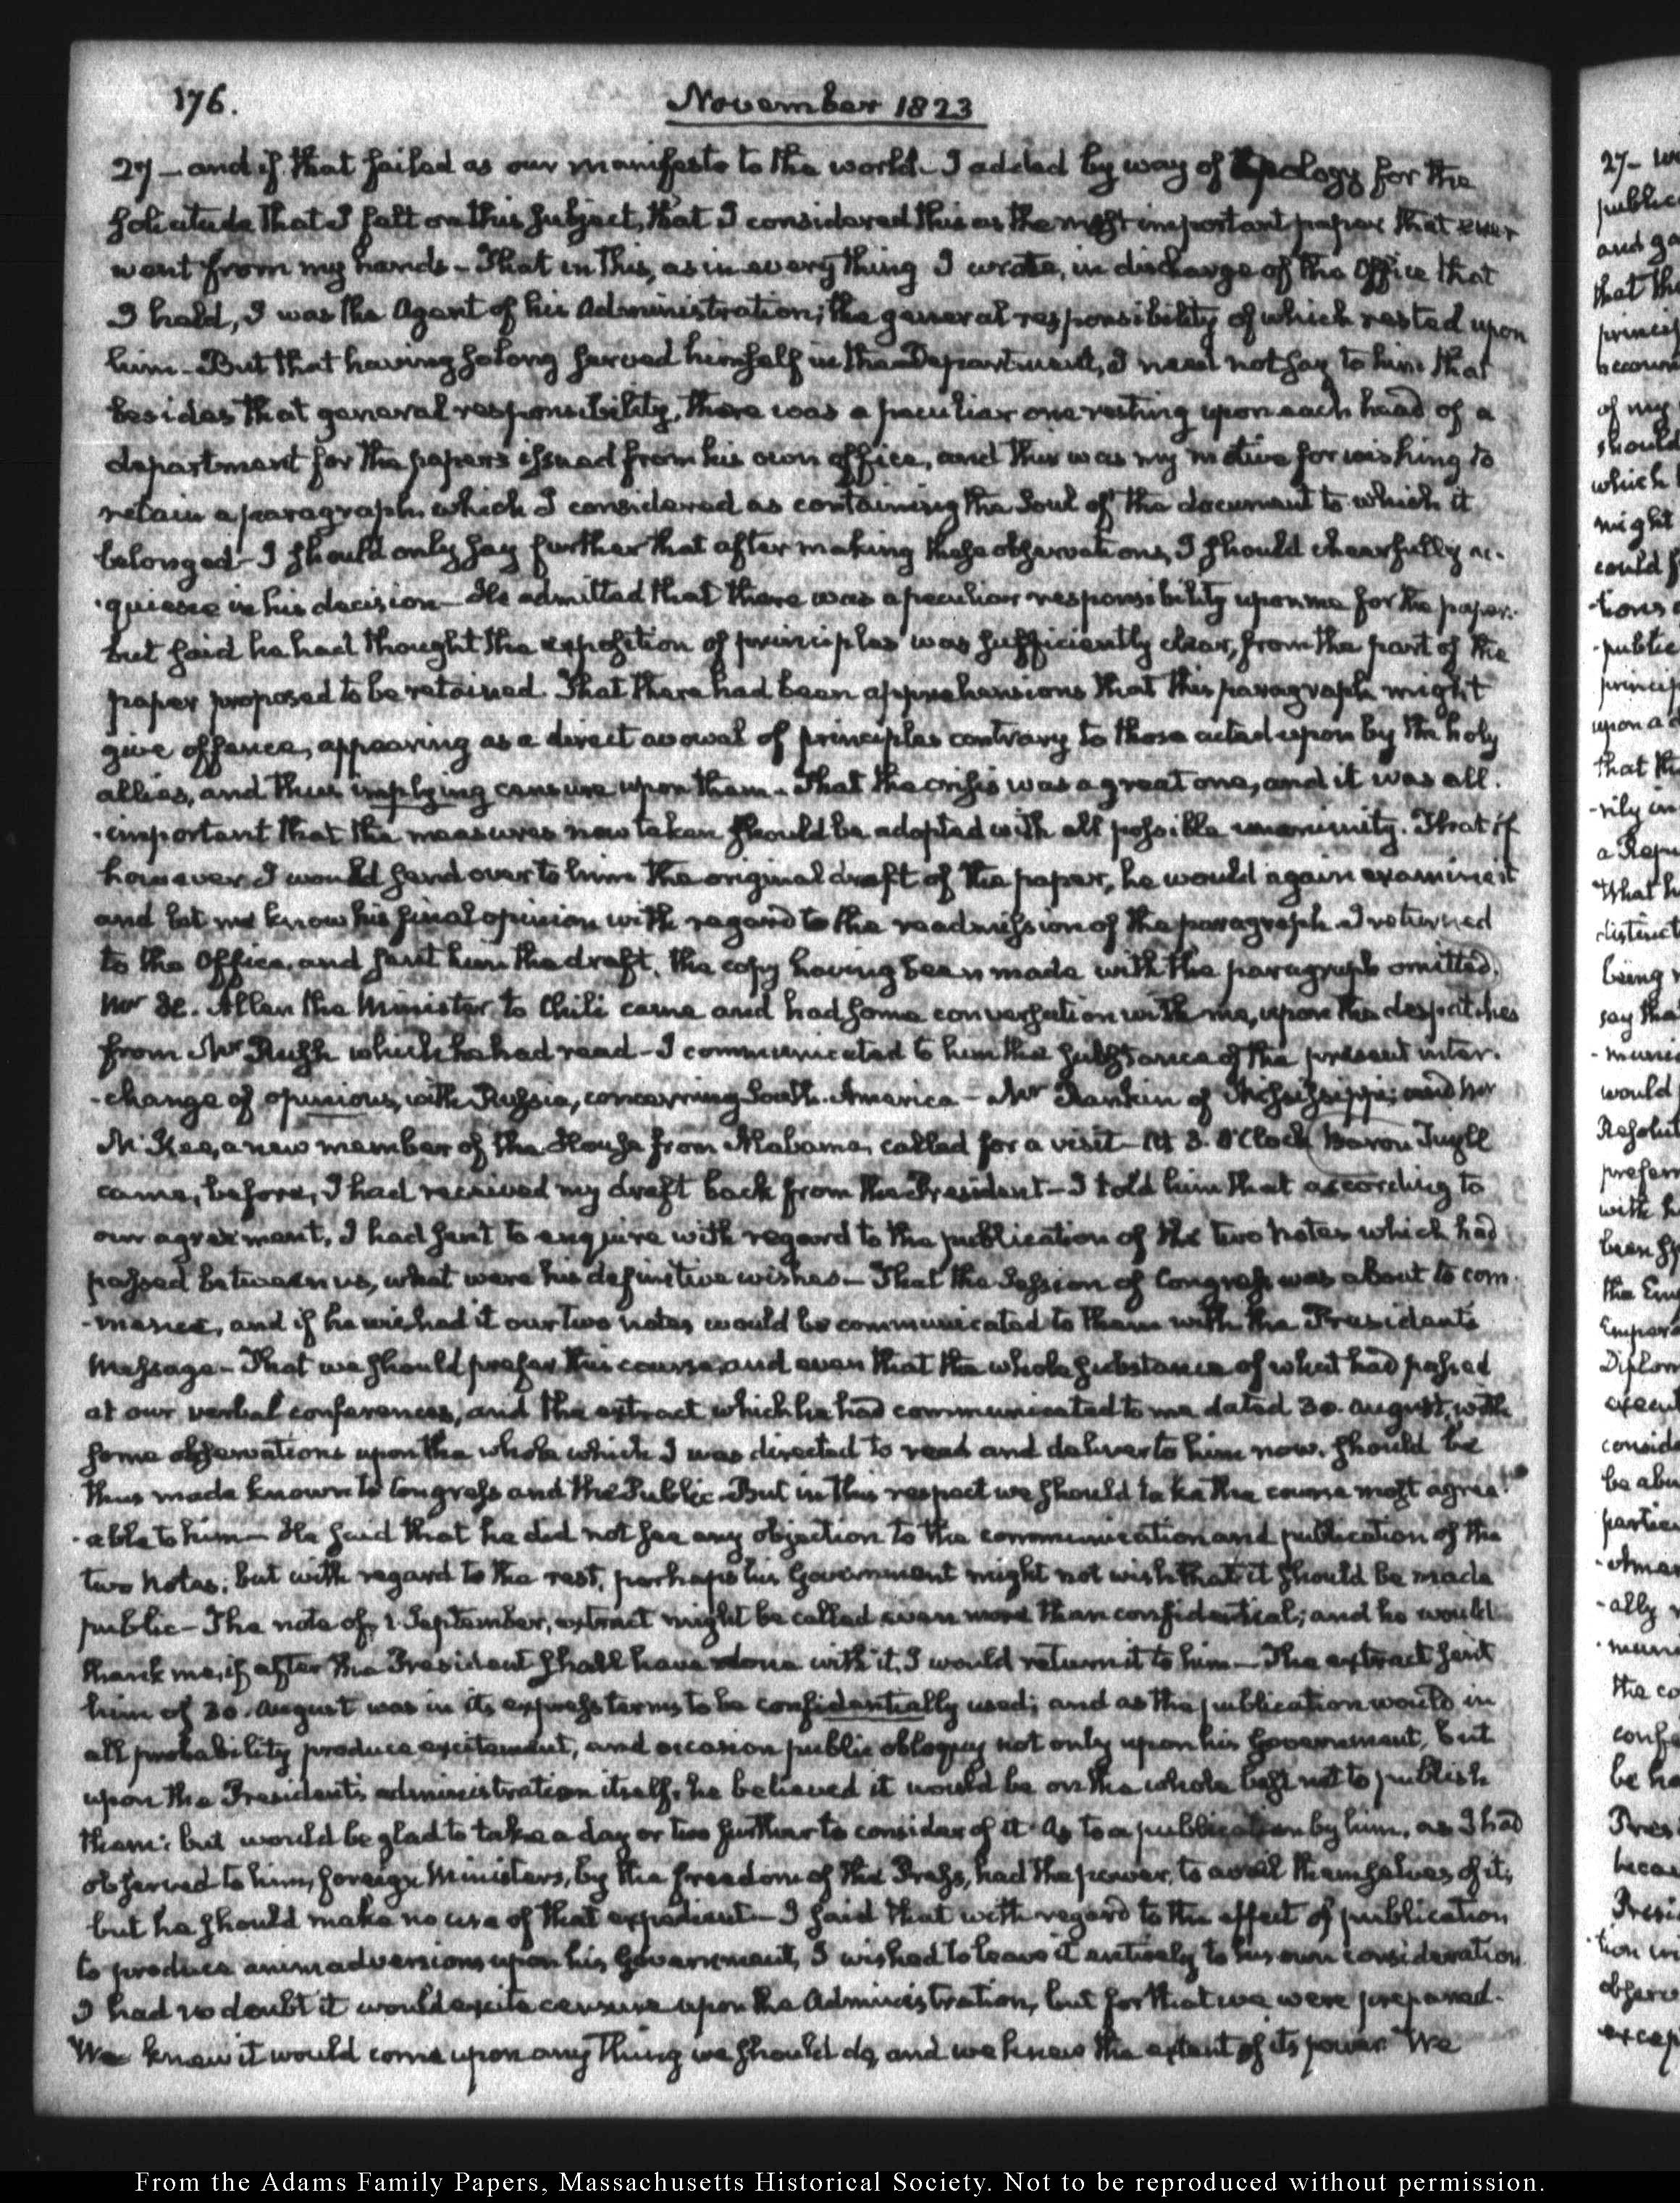 176.
November 1823
27 — and if that failed as our manifesto to the world. I added by way of apology for the
solicitude that I felt on this subject, that I considered this as the most important paper that ever
went from my hands — That in this, as in every thing I wrote, in discharge of the Office that
I held, I was the Agent of his Administration; the general responsibility of which rested upon
him — But that having so long served himself in the Department, I need not say to him that
besides that general responsibility, there was a peculiar one resting upon each head of a
department for the papers issued from his own office, and this was my motive for wishing to
retain a paragraph which I considered as containing the soul of the document to which it
belonged — I should only say further that after making these observations, I should chearfully ac-
-quiesce in his decision — He admitted that there was a peculiar responsibility upon me for the paper.
but said he had thought the exposition of principles was sufficiently clear, from the part of the
paper proposed to be retained. That there had been apprehensions that this paragraph might
give offence, appearing as a direct avowal of principles contrary to those acted upon by the holy
allies, and thus implying censure upon them. That the crisis was a great one, and it was all-
-important that the measures now taken should be adopted with all possible unanimity. That if
however I would send over to him the original draft of the paper, he would again examine it
and let me know his final opinion with regard to the readmission of the paragraph. I returned
to the Office and sent him the draft, the copy having been made with the paragraph omitted.
Mr H. Allen the Minister to Chili came and had some conversation with me, upon the despatches
from Mr Rush which he had read — I communicated to him the substance of the present inter-
-change of opinions, with Russia, concerning South-America — Mr Rankin of Mississippi; and Mr
McKee, a new member of the House from Alabama, called for a visit — At 3. O'Clock Baron Tuyll
came, before, I had received my draft back from the President — I told him that according to
our agreement, I had sent to enquire with regard to the publication of the two notes which had
passed between us, what were his definitive wishes — That the Session of Congress was about to com-
-mence, and if he wished it our two notes would be communicated to them with the President's
Message — That we should prefer this course, and even that the whole substance of what had passed
at our verbal conferences, and the extract which he had communicated to me dated 30. August, with
some observations upon the whole which I was directed to read and deliver to him now, should be
thus made known to Congress and the Public. But in this respect we should take the course most agree-
-able to him — He said that he did not see any objection to the communication and publication of the
two notes; but with regard to the rest, perhaps his Government might not wish that it should be made
public — The note of 1 September, extract might be called even more than confidential; and he would
thank me, if after the President shall have done with it, I would return it to him — The extract sent
him of 30. August was in its express terms to be confidentially used; and as the publication would in
all probability produce excitement, and occasion public obloquy not only upon his Government, but
upon the President's administration itself, he believed it would be on the whole best not to publish
them: but would be glad to take a day or two further to consider of it. As to a publication by him, as I had
observed to him, foreign Ministers, by the freedom of the Press, had the power, to avail themselves of it,
but he should make no use of that expedient — I said that with regard to the effect of publication
to produce animadversions upon his Government, I wished to leave it entirely to his own consideration.
I had no doubt it would excite censure upon the Administration, but for that we were prepared.
We knew it would come upon any thing we should do, and we knew the extent of its power. We
From the Adams Family Papers, Massachusetts Historical Society. Not to be reproduced without permission.